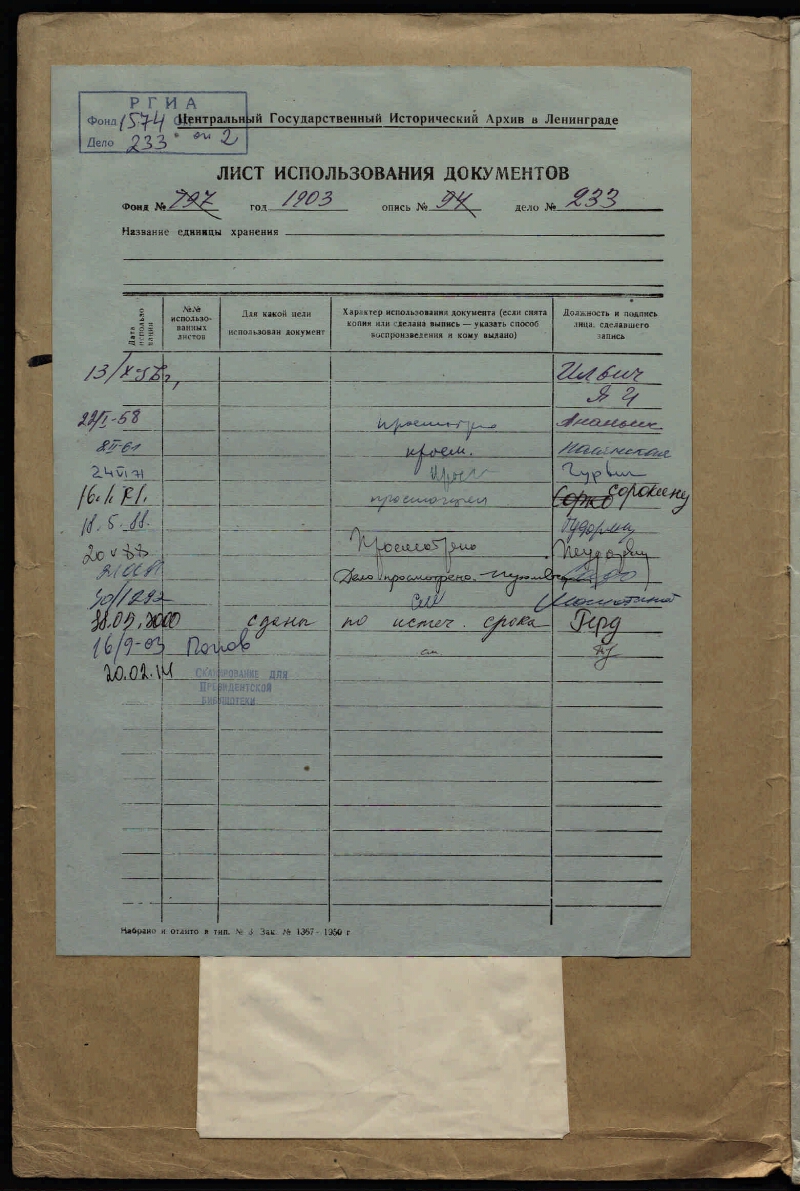 РГИА
Фонд 1574 оп 2
Дело 233
Центральный Государственный Исторический Архив в Ленинграде
ЛИСТ ИСПОЛЬЗОВАНИЯ ДОКУМЕНТОВ
Фонд № 797 год 1903 опись № 94 дело № 233
Название единицы хранения
Дата использования
№№ использованных листов
Для какой цели использован документ
Характер использования документа (если снята копия или сделана выпись — указать способ воспроизведения и кому выдано)
Должность и подпись лица, сделавшего запись
22/I-58 просмотрено
8 II-61 просм.
24 VI 71 Гурвич
просмотрел Сорокину
18.5.88.
Просмотрено
Дело просмотрено.
см
28.05.2000 сданы по истеч. срока Герд
16/9-03 Попов см
20.02.14 Сканирование для
Президентской
библиотеки
Набрано и отпито в тип. № 3 Зак. № 1367 - 1950 г